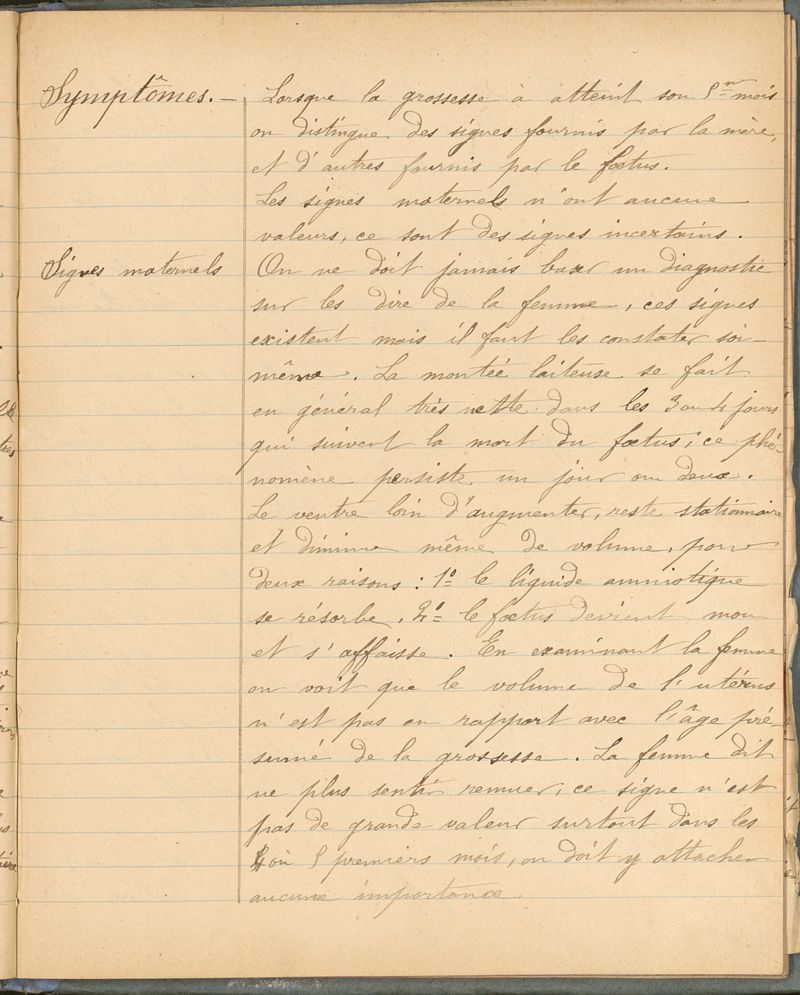 Symptômes. — Lorsque la grossesse à atteint son 5me mois
on distingue des signes fournis par la mère,
et d'autres fournis par le fœtus.
Les signes maternels n'ont aucune
valeurs, ce sont des signes incertains.
Signes maternels On ne doit jamais baser un diagnostic
sur les dire de la femme, ces signes
existent mais il faut les constater soi-
même. La montée laiteuse se fait
en général très nette dans les 3 ou 4 jours
qui suivent la mort du fœtus; ce phé-
nomène persiste un jour ou deux.
Le ventre loin d'augmenter, reste stationnaire
et diminue même de volume, pour
deux raisons : 1º le liquide amniotique
se résorbe. 2º le fœtus devient mou
et s'affaisse. En examinant la femme
on voit que le volume de l'utérus
n'est pas en rapport avec l'âge pré-
sumé de la grossesse. La femme dit
ne plus sentir remuer, ce signe n'est
pas de grande valeur surtout dans les
4 où 5 premiers mois, on doit y attacher
aucune importance.